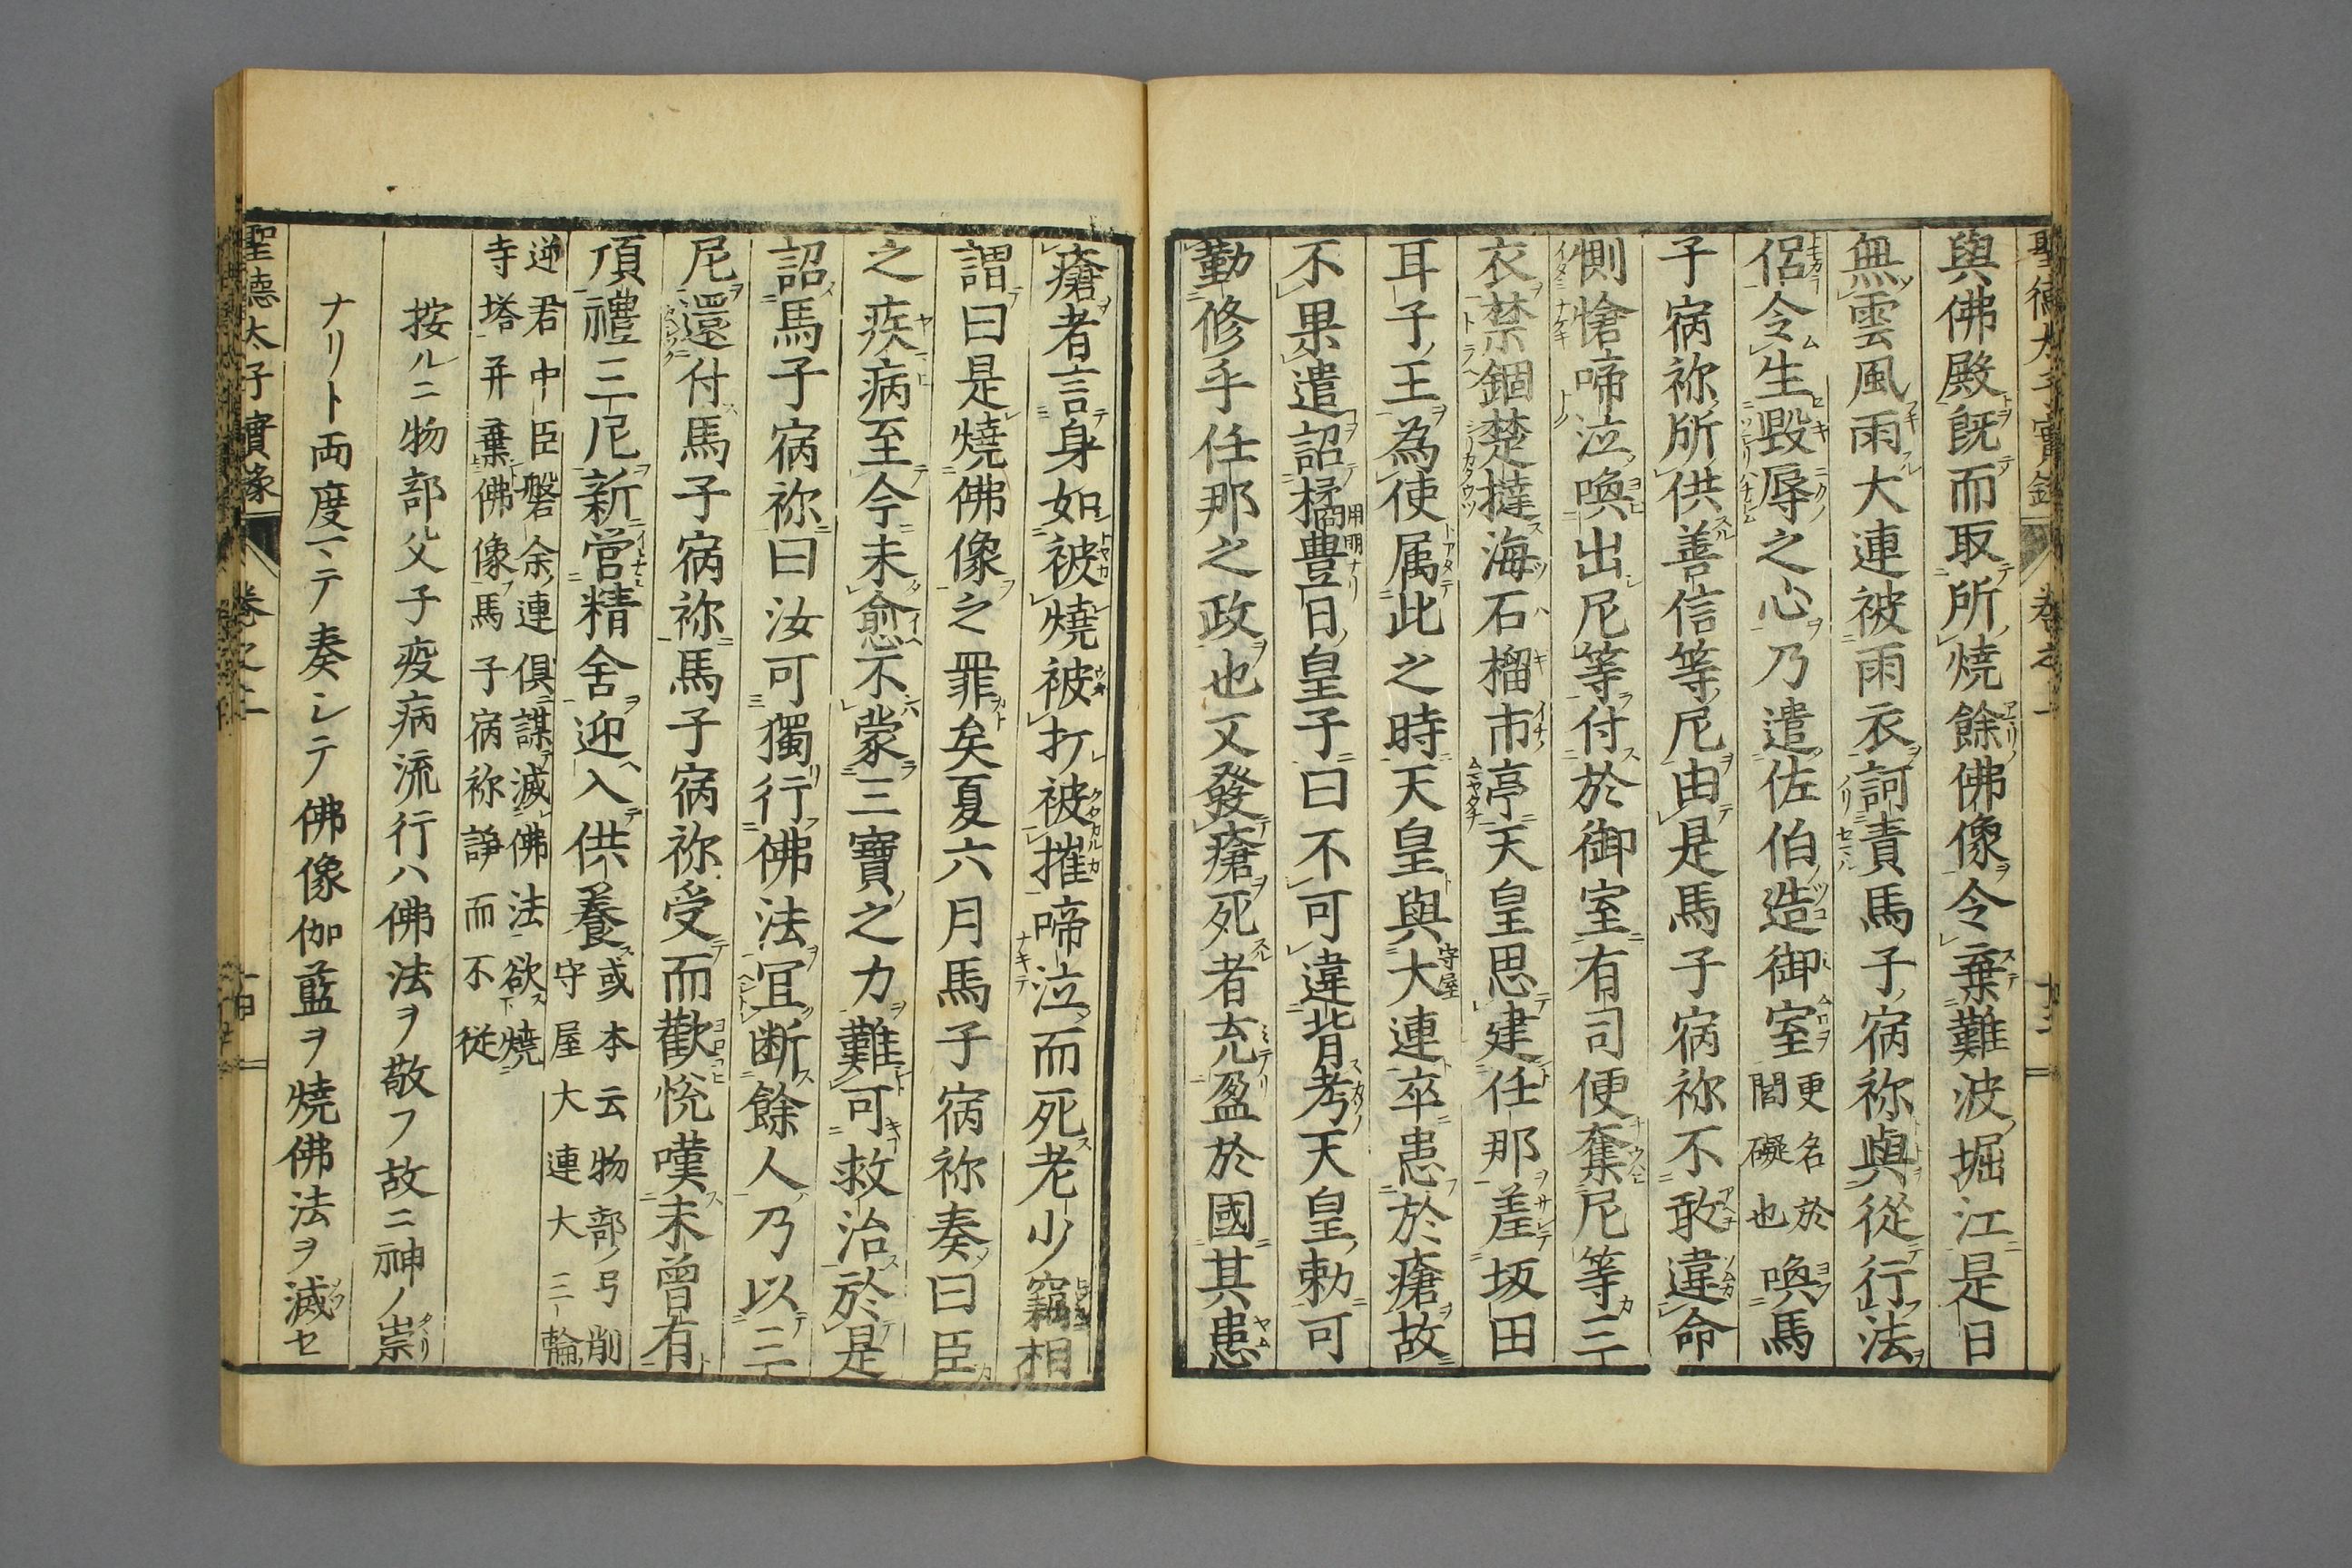 與佛殿既而取所燒餘佛像令棄難波堀江是日
無雲風雨大連被雨衣訶責馬子宿祢與從行法
侶令生毀辱之心乃遣佐伯造御室更名於閭礙也喚馬
子宿祢所供善信等尼由是馬子宿祢不敢違命
惻愴啼泣喚出尼等付於御室有司便奪尼等三
衣禁錮楚撻海石榴市亭天皇思建任那差坂田
耳子王為使属此之時天皇與大連卒患於瘡故
不果遣詔橘豊日皇子曰不可違背考天皇勅可
勤修乎任那之政也又發瘡死者充盈於國其患
瘡者言身如被燒被打被摧啼泣而死老少竊相
謂曰是燒佛像之罪矣夏六月馬子宿祢奏曰臣
之疾病至今未愈不蒙三寶之力難可救治於是
詔馬子宿祢曰汝可獨行佛法冝断餘人乃以三
尼還付馬子宿祢馬子宿祢受而歡悅嘆未曾有
頂禮三尼新営精舍迎入供養或本云物部弓削
守屋大連大三輪
逆君中臣磐余連俱謀滅佛法欲燒
寺塔并棄佛像馬子宿祢諍而不從
按ルニ物部父子疫病流行ハ佛法ヲ敬フ故ニ神ノ崇
ナリト両度マテ奏シテ佛像伽藍ヲ燒佛法ヲ滅セ
聖德太子實錄
卷之一
聖德太子實錄
卷之二